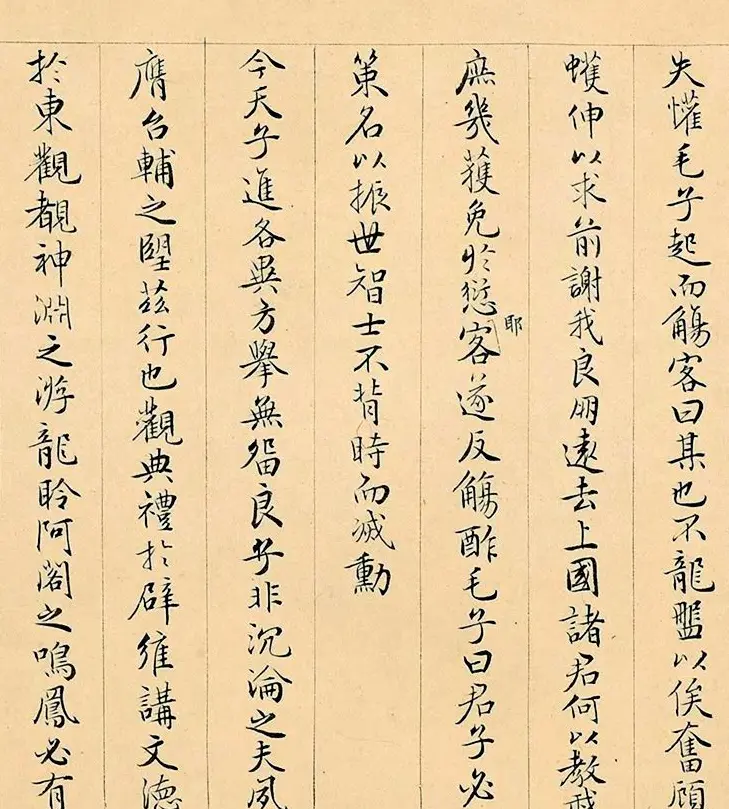 失懽毛子起而觴客曰某也不龍盤以俟奮願
蠖伸以求前謝我良朋遠去上國諸君何以教我
庶幾獲免於愆耶客遂反觴酢毛子曰君子必
策名以振世智士不背時而滅勳
今天子進各異方舉無留良乎非沉淪之夫夙
膺台輔之望茲行也觀典禮於辟雍講文德
於東觀覩神淵之游龍聆阿閣之鳴鳳必有